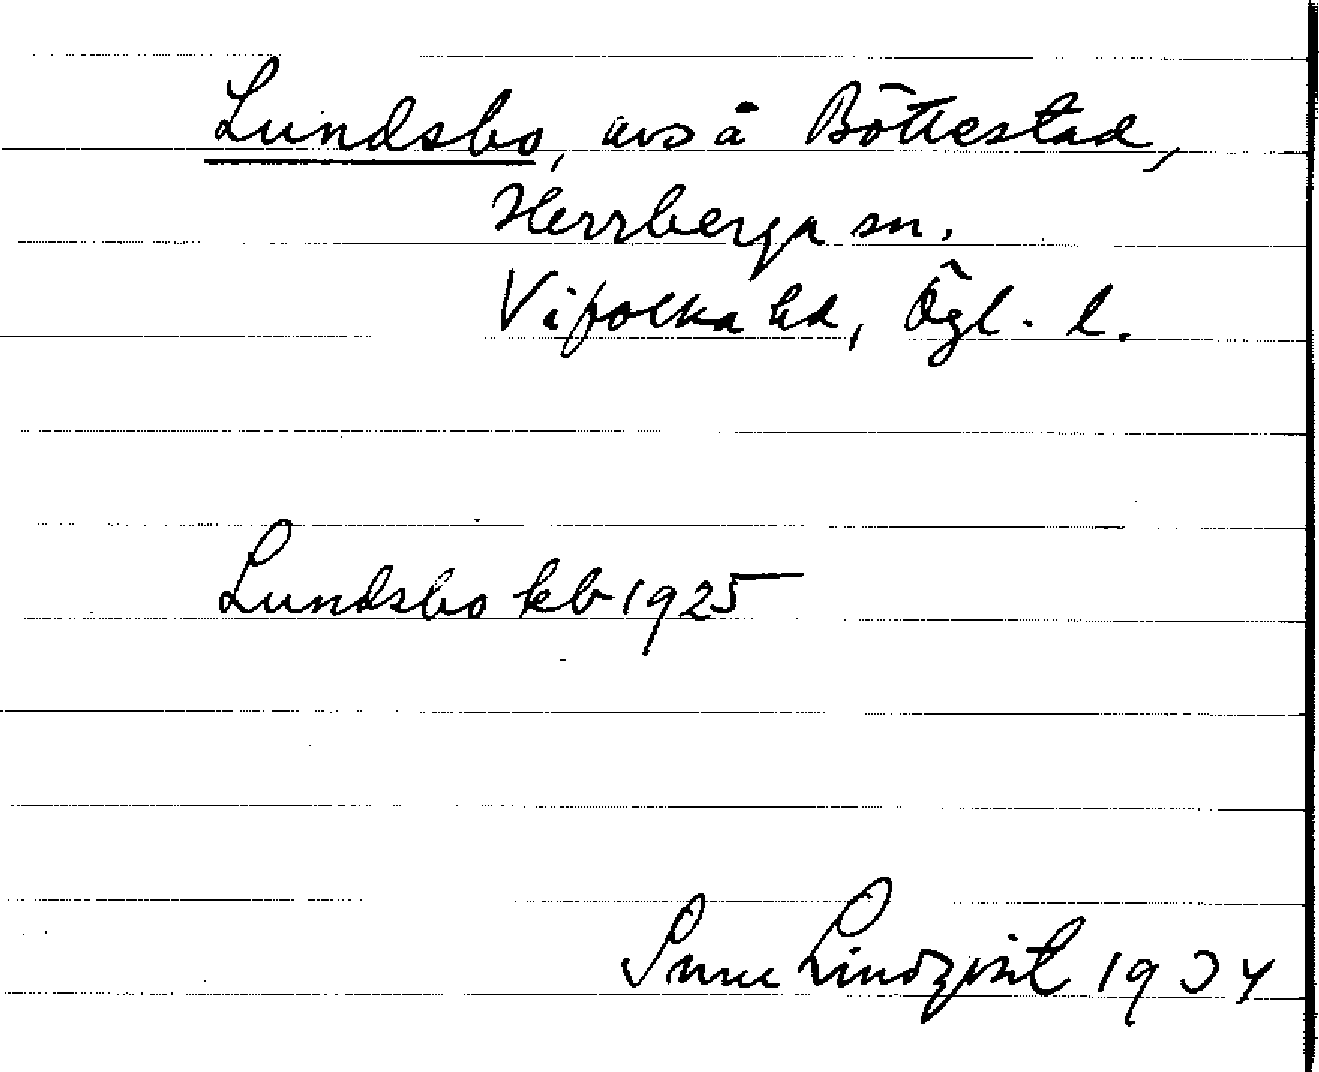 Lundsbo, avs å Böttestad,
Herrberga sn.
Vifolka hd, Ögl. l.
Lundsbo kb 1925
Sune Lindqvist 1934